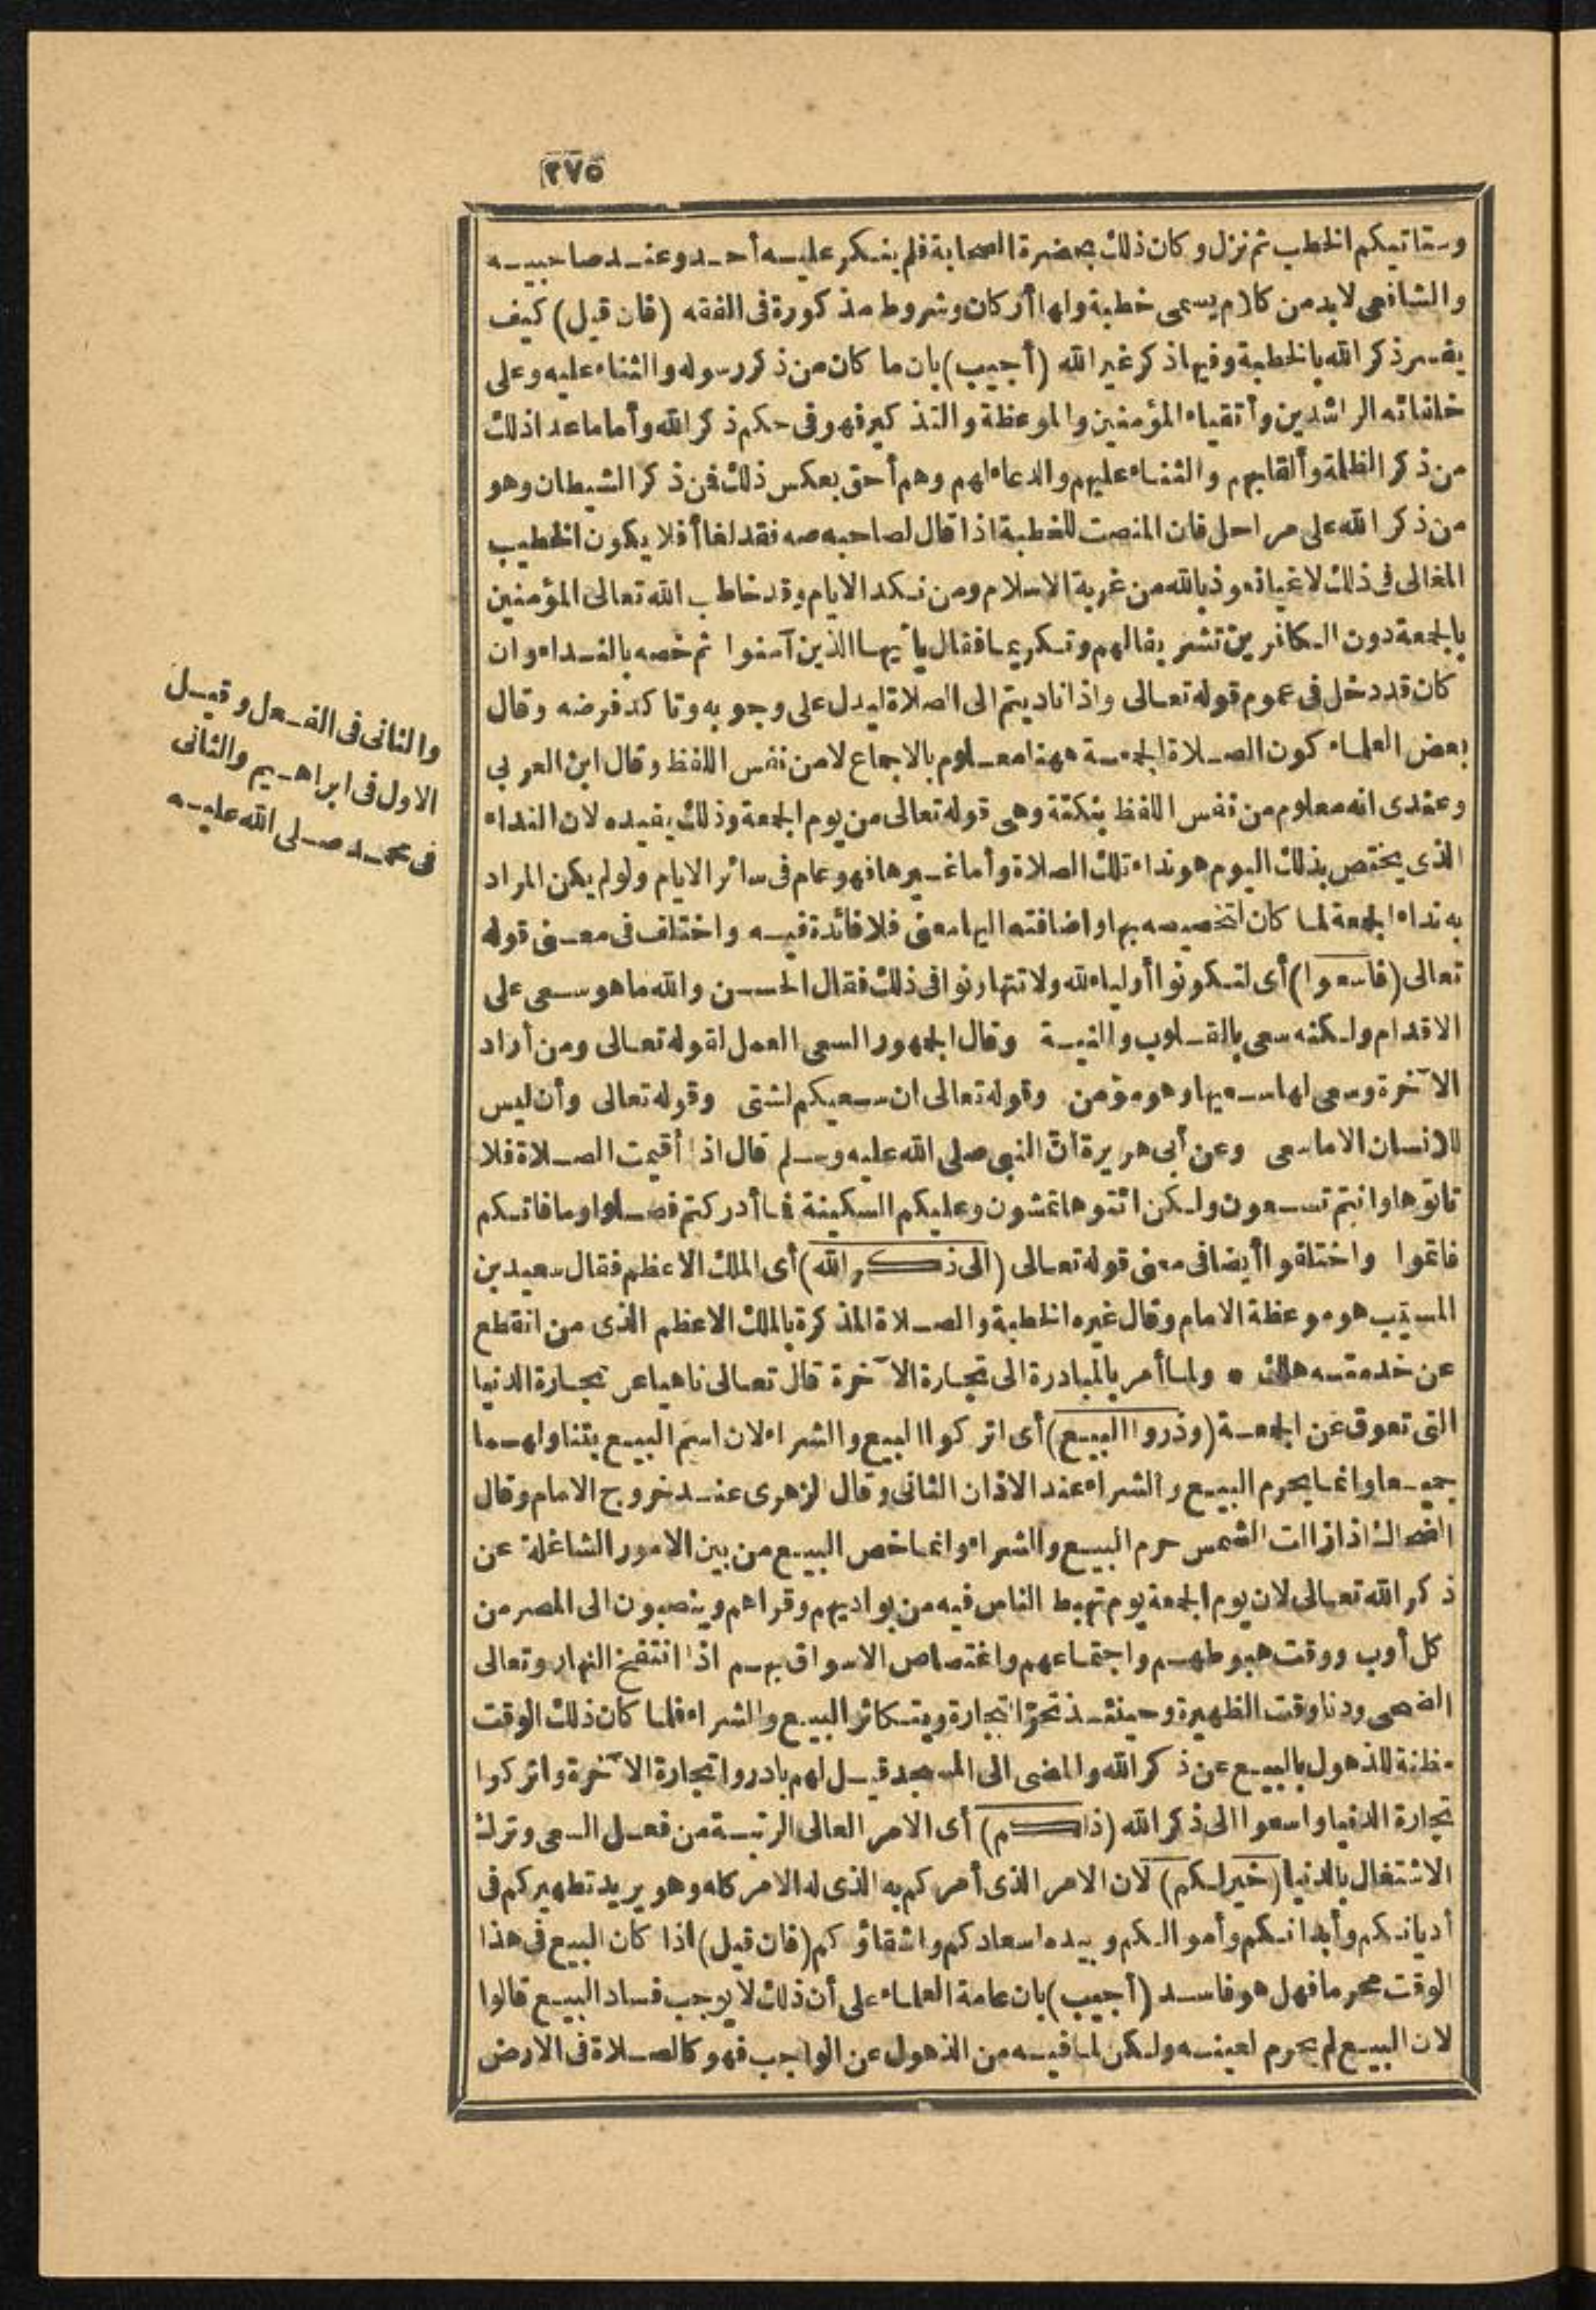 ٢٧٥
وستاتيكم الخطب ثم نزل وكان ذلك بحضرة الصحابة فلم ينكر عليه أحد وعند صاحبيه
والشافعي لابد من كلام يسمى خطبة ولها أركان وشروط مذكورة فى الفقه (فان قيل) كيف
يفسر ذكر الله بالخطبة وفيها ذكر غير الله (أجيب) بان ما كان من ذكر رسوله والثناء عليه وعلى
خلفائه الراشدين وأتقياء المؤمنين والموعظة والتذكير فهو فى حكم ذكر الله وأما ما عدا ذلك
من ذكر الظلمة وألقابهم والثناء عليهم والدعاء لهم وهم أحق بعكس ذلك فن ذكر الشيطان وهو
من ذكر الله على مراحل فان المنصت للخطبة اذا قال لصاحبه صه فقد لغا أفلا يكون الخطيب
المغالى فى ذلك لاغيا نعوذ بالله من غربة الاسلام ومن نكد الايام وقد خاطب الله تعالى المؤمنين
بالجمعة دون الكافرين تشريفا لهم وتكريما فقال يأيها الذين آمنوا ثم خصه بالنداء وان
كان قد دخل فى عموم قوله تعالى واذا ناديتم الى الصلاة ليدل على وجوبه وتاكد فرضه وقال
بعض العلماء كون الصلاة الجمعة ههنا معلوم بالاجماع لا من نفس اللفظ وقال ابن العربي
وعندى انه معلوم من نفس اللفظ بنكتة وهى قوله تعالى من يوم الجمعة وذلك يفيده لان النداء
الذى يختص بذلك اليوم هو نداء تلك الصلاة وأما غيرها فهو عام فى سائر الايام ولو لم يكن المراد
به نداء الجمعة لما كان لتخصيصه بها واضافته اليها معنى فلا فائدة فيه واختلف فى معنى قوله
تعالى (فاسعوا) أى لتكونوا أولياء لله ولا تتهاونوا فى ذلك فقال الحسن والله ما هو سعى على
الاقدام ولكنه سعى بالقلوب والنية وقال الجمهور السعى العمل لقوله تعالى ومن أراد
الآخرة وسعى لها سعيها وهو مؤمن وقوله تعالى ان سعيكم لشتى وقوله تعالى وأن ليس
للانسان الا ما سعى وعن أبى هريرة أنّ النبى صلى الله عليه وسلم قال اذا أقيمت الصلاة فلا
تاتوها وانتم تسعون ولكن ائتوها تمشون وعليكم السكينة فما أدركتم فصلوا وما فاتكم
فاتموا واختلفوا أيضا فى معنى قوله تعالى (الى ذكر الله) أى الملك الاعظم فقال سعيد بن
المسيب هو موعظة الامام وقال غيره الخطبة والصلاة المذكرة بالملك الاعظم الذى من انقطع
عن خدمته هلك * ولما أمر بالمبادرة الى تجارة الآخرة قال تعالى ناهيا عن تجارة الدنيا
التى تعوق عن الجمعة (وذروا البيع) أى اتركوا البيع والشراء لان اسم البيع يتناولهما
جميعا وانما يحرم البيع والشراء عند الاذان الثانى وقال الزهرى عند خروج الامام وقال
الضحاك اذا زالت الشمس حرم البيع والشراء وانما خص البيع من بين الامور الشاغلة عن
ذكر الله تعالى لان يوم الجمعة يوم تهبط الناس فيه من بواديهم وقراهم وينصبون الى المصر من
كل أوب ووقت هبوطهم واجتماعهم واغتصاص الاسواق بهم اذا انتفخ النهار وتعالى
الضحى ودنا وقت الظهيرة وحينئذ تحرّ التجارة ويتكاثر البيع والشراء فلما كان ذلك الوقت
مظنة للذهول بالبيع عن ذكر الله والمضى الى المسجد قيل لهم بادروا تجارة الآخرة واتركوا
تجارة الدنيا واسعوا الى ذكر الله (ذلكم) أى الامر العالى الرتبة من فعل السعى وترك
الاشتغال بالدنيا (خير لكم) لان الامر الذى أمركم به الذى له الامر كله وهو يريد تطهيركم فى
أديانكم وأبدانكم وأموالكم وبيده اسعادكم واشقاؤكم (فان قيل) اذا كان البيع فى هذا
الوقت محرما فهل هو فاسد (أجيب) بان عامة العلماء على أن ذلك لا يوجب فساد البيع قالوا
لان البيع لم يحرم لعينه ولكن لما فيه من الذهول عن الواجب فهو كالصلاة فى الارض
والثانى فى الفعل وقيل
الاول فى ابراهيم والثانى
فى محمد صلى الله عليه